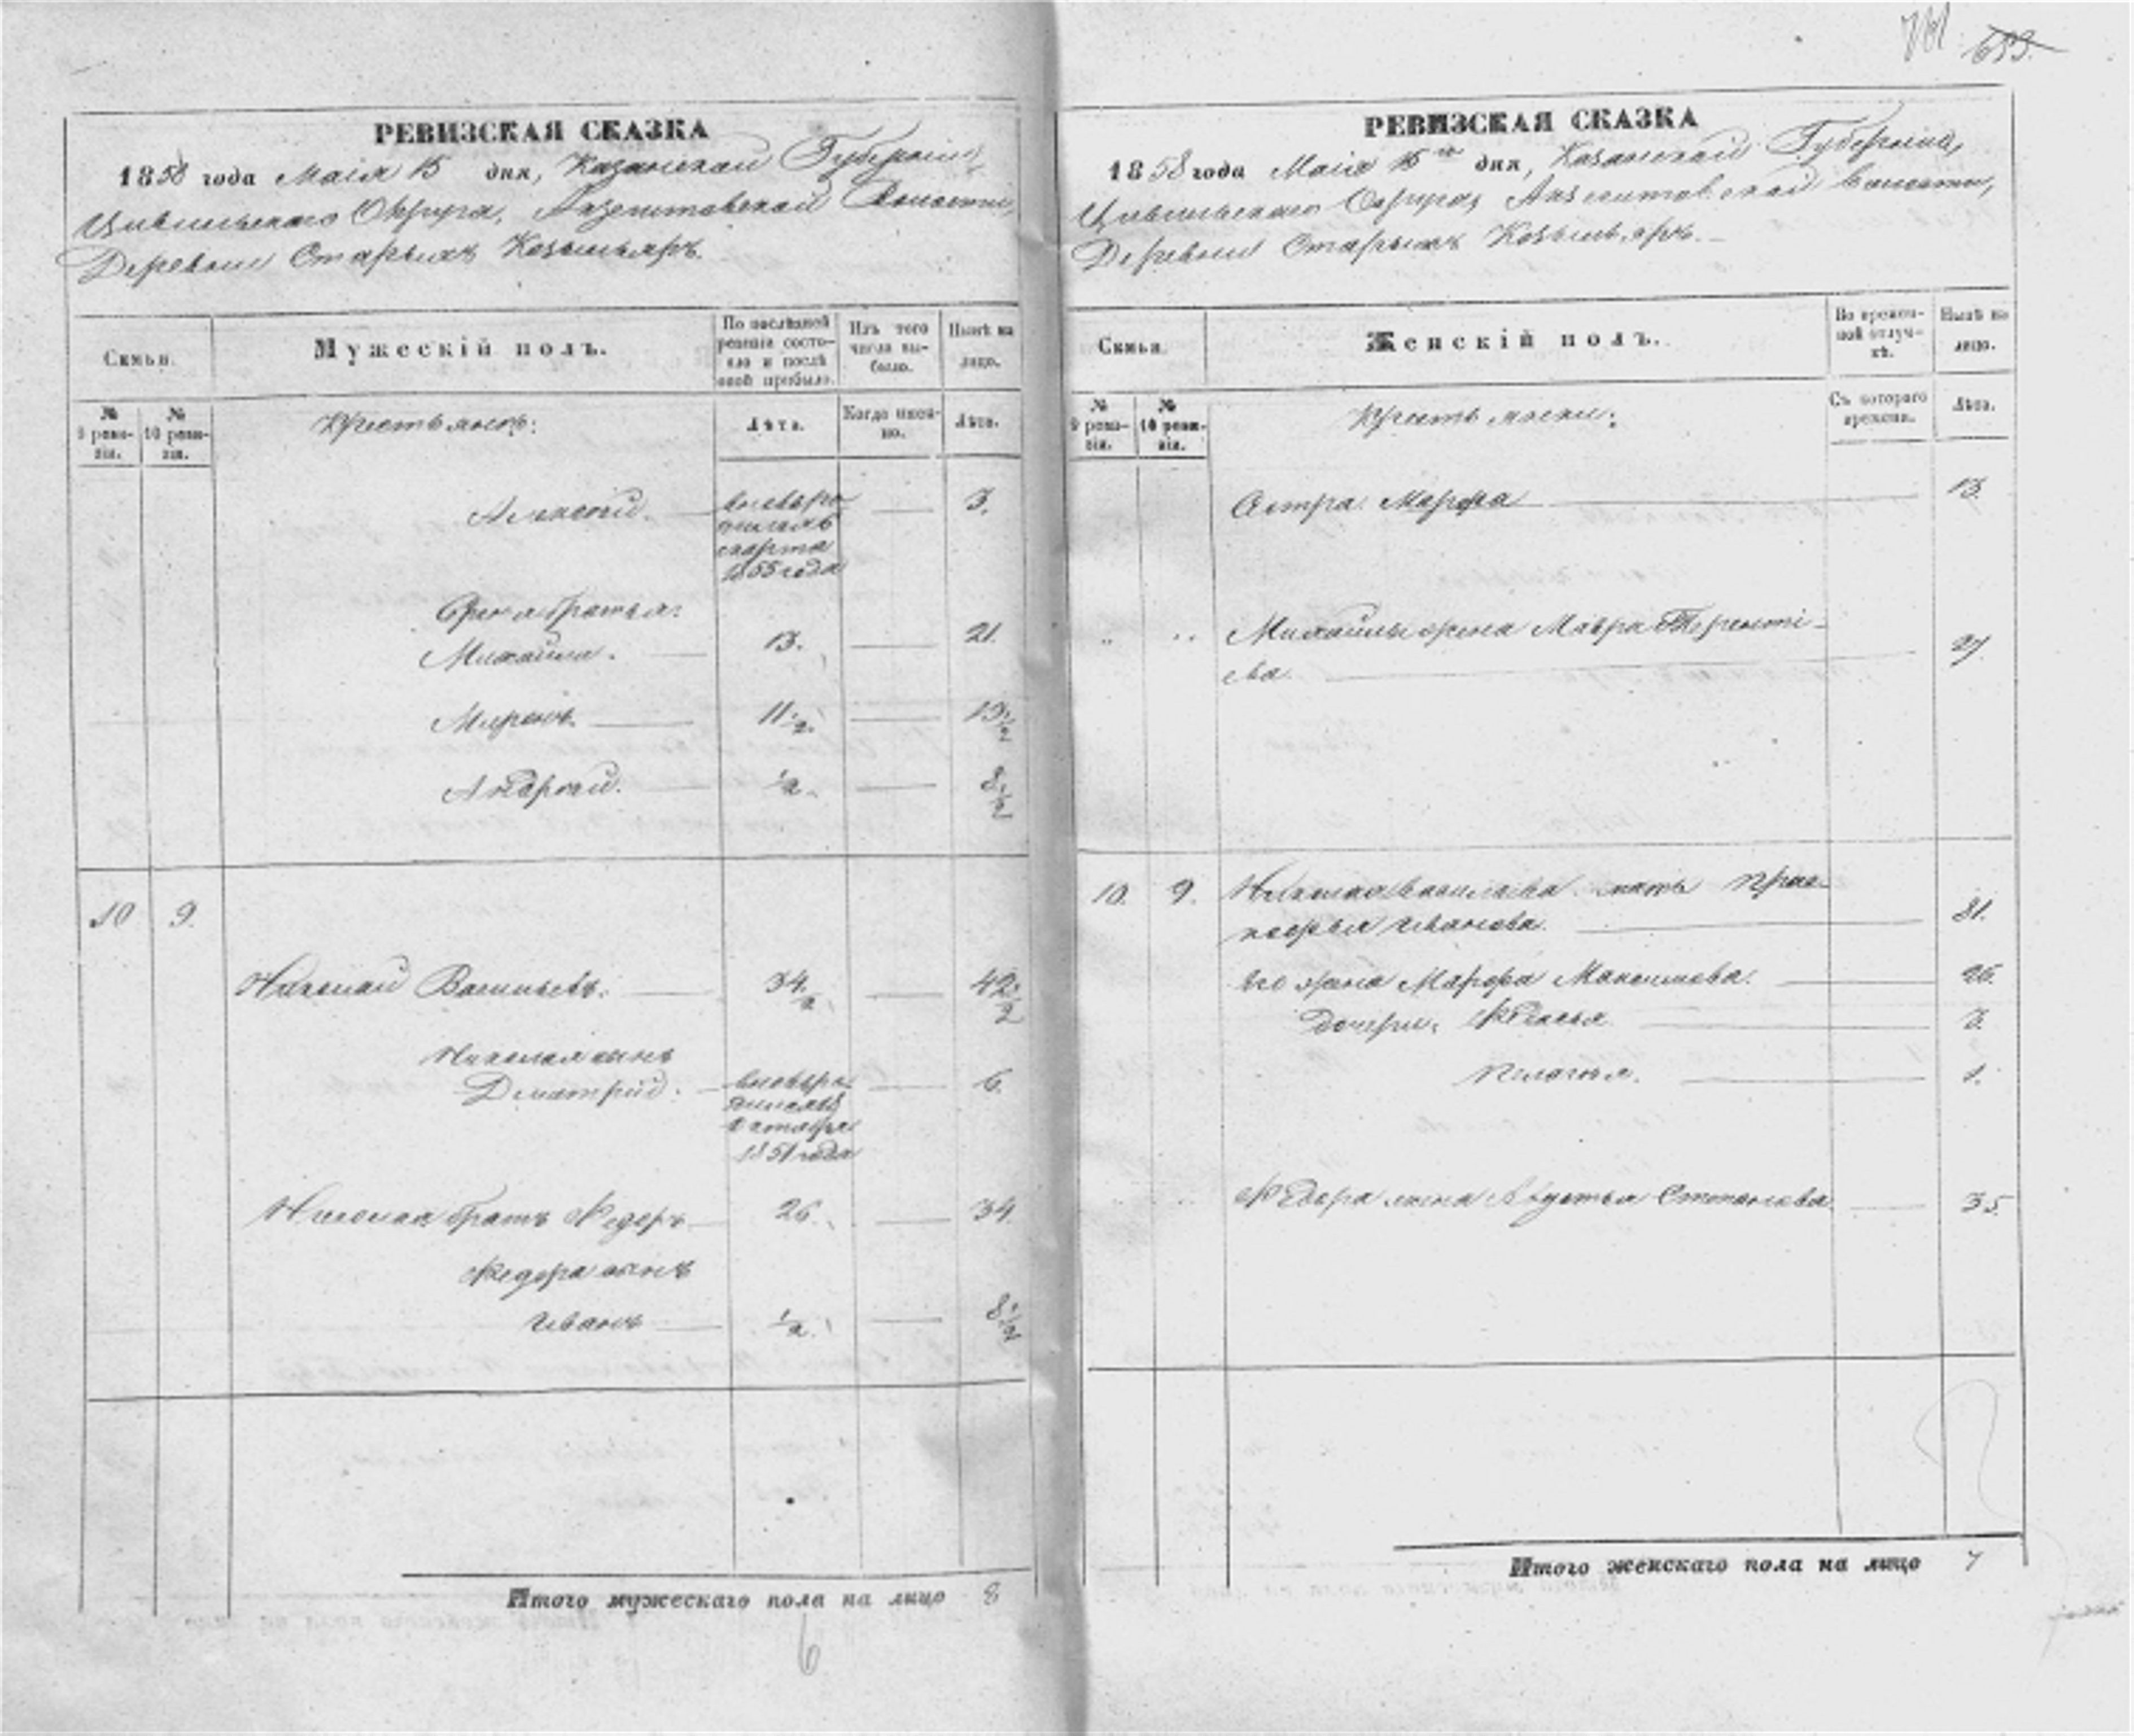 РЕВИЗСКАЯ СКАЗКА
1858 года Маія 15 дня, Казанской Губерніи,
Цивильскаго Округа, Волости,
Деревни Старыхъ
Семьи.
Мужескій полъ.
По послѣдней ревизіи состояло и послѣ оной прибыло.
Изъ того числа выбыло.
Нынѣ на лицо.
№ 9 ревизіи.
№ 10 ревизіи.
Крестьянъ:
Лѣта.
Когда именно.
Лѣта.
Алексѣй. вновьро 3.
дился въ
марта
1855 года
братья:
Михайла. 13. 21.
Миронъ. 11 1/2. 19 1/2
Андрей. 1/2. 8 1/2
10 9.
Николай Васильевъ. 34 1/2 42 1/2
Николая сынъ
Дмитрій. вновьро 6.
дился въ
октябрѣ
1851 года
Николая братъ Федоръ 26. 34.
Федора сынъ
Иванъ 1/2. 8 1/2
Итого мужескаго пола на лицо 8
6
761 653.
РЕВИЗСКАЯ СКАЗКА
1858 года Маія 15го дня, Казанской Губерніи,
Цивильскаго Округа, Волости,
Деревни Старыхъ
Семьи.
Женскій полъ.
Во временной отлучкѣ.
Нынѣ на лицо.
№ 9 ревизіи.
№ 10 ревизіи.
Крестьянки:
Съ котораго времени.
Лѣта.
Сестра Марфа 13.
Михайлы жена Мавра Теренті-
ева. 27.
10. 9. Николая Васильева мать Прас-
ковья Иванова. 81.
Его жена Марфа Максимова. 26.
Дочери: 3.
Пелагья. 1.
Федора жена Степанова 35.
Итого женскаго пола на лицо 7